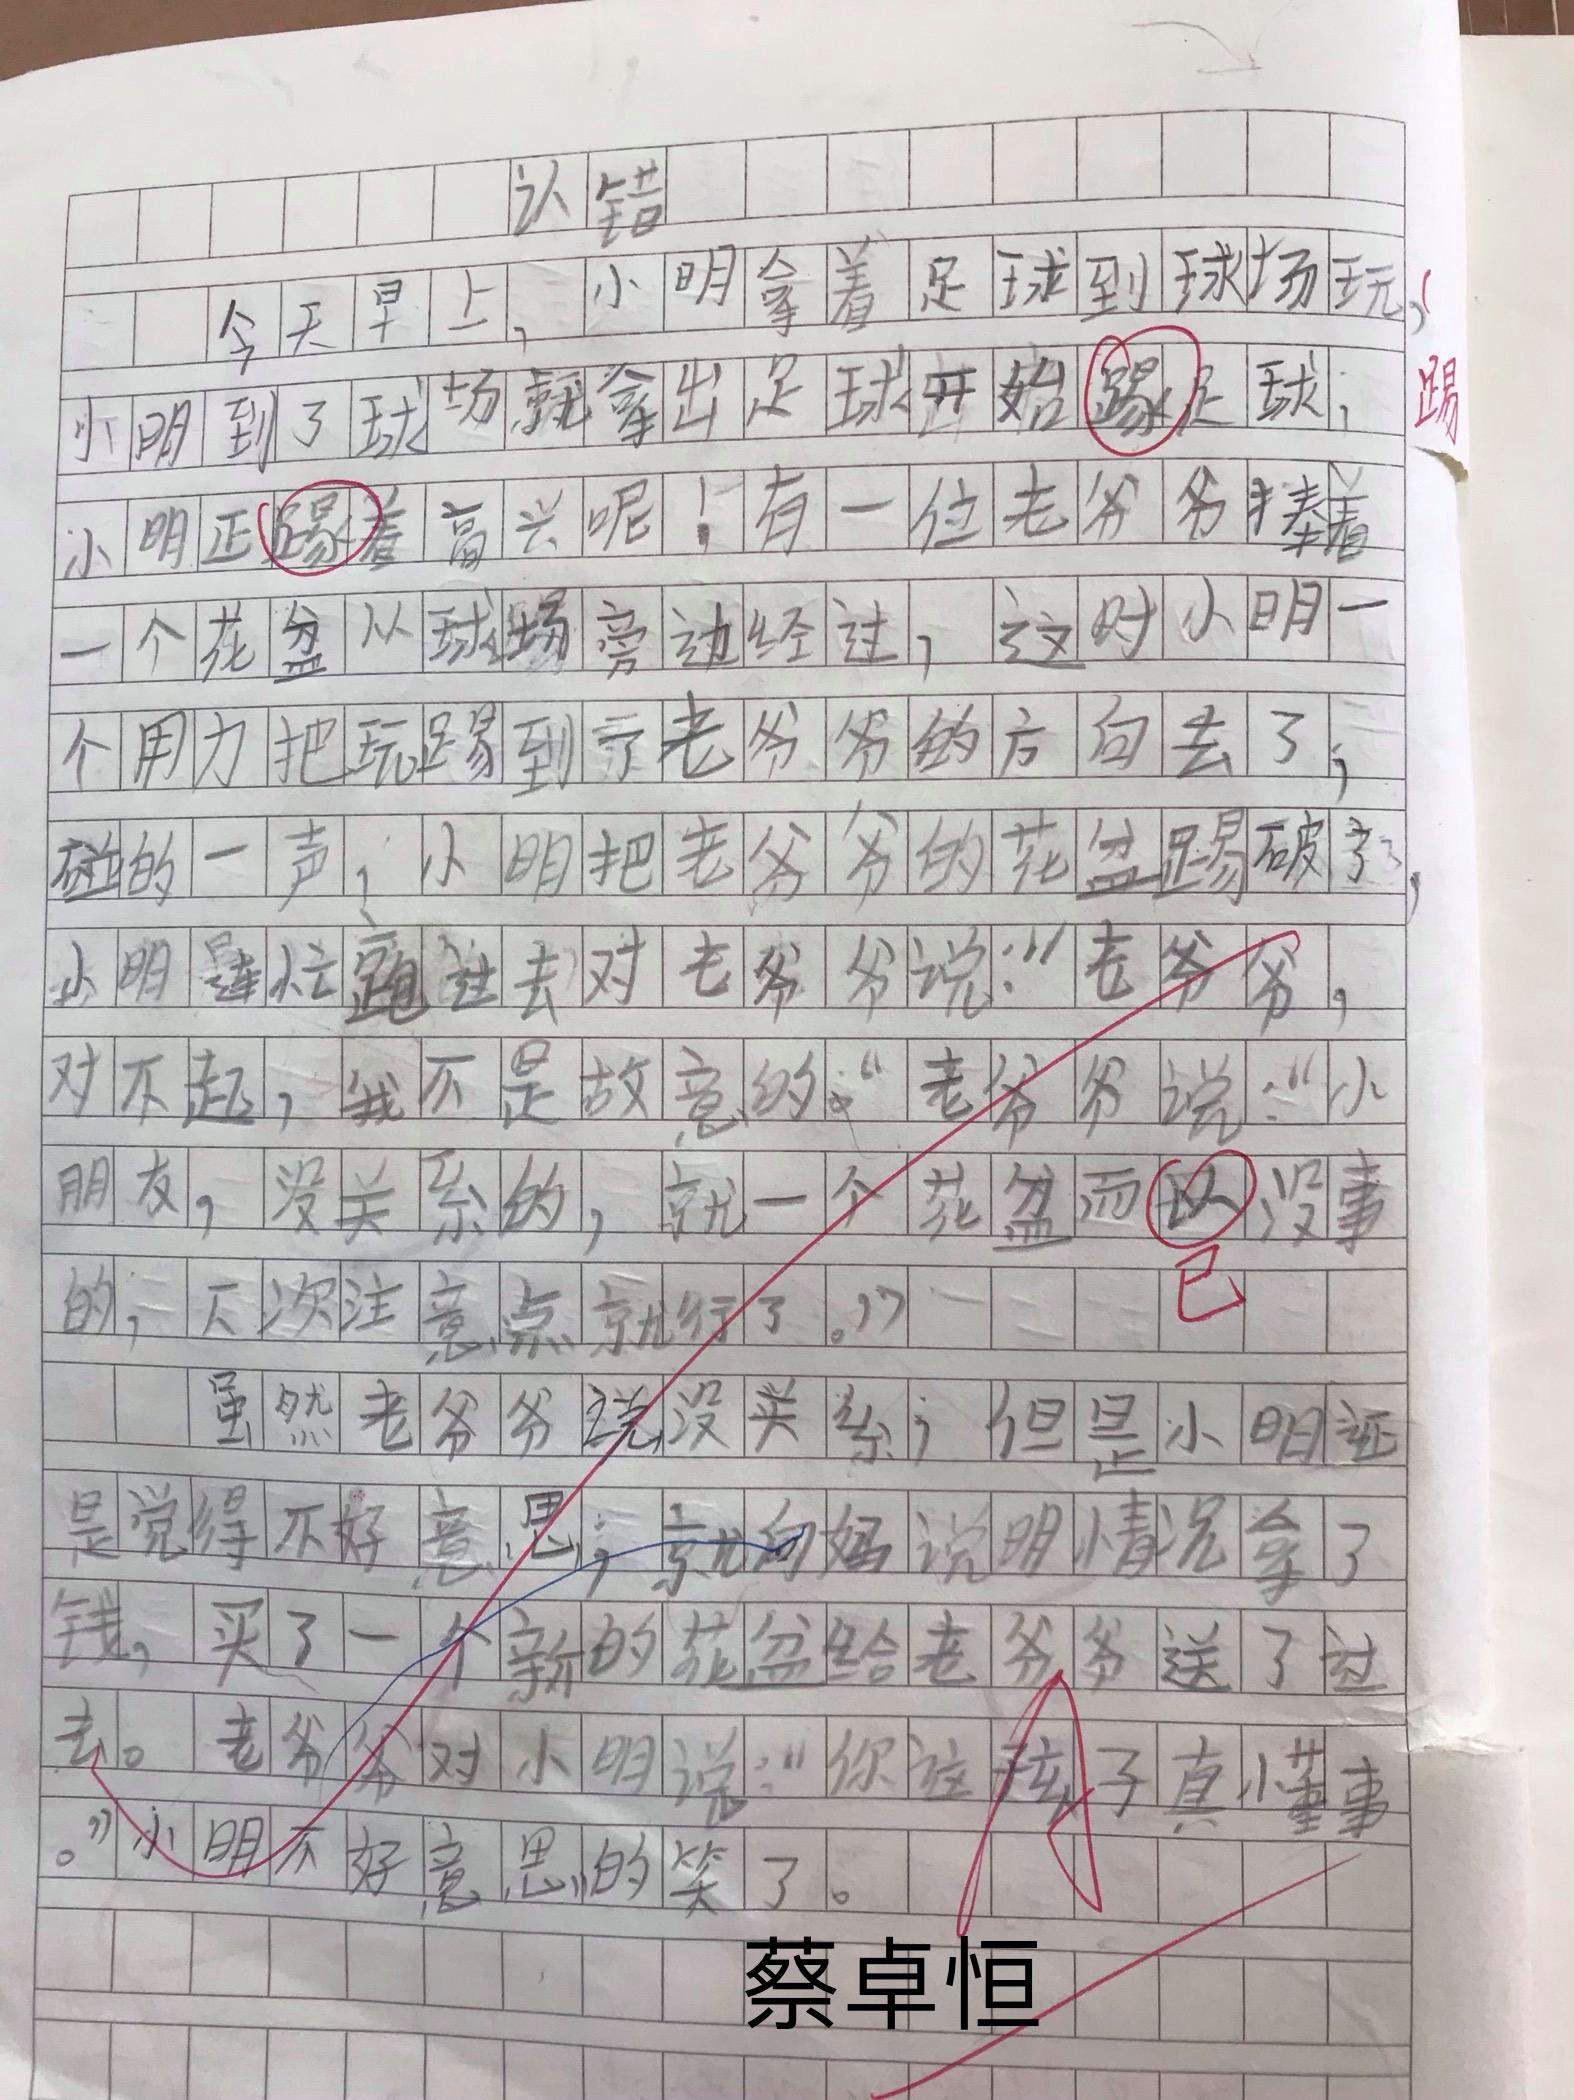 认错
今天早上，小明拿着足球到球场玩，
小明到了球场就拿出足球开始踢足球，踢
小明正踢着高兴呢！有一位老爷爷捧着
一个花盆从球场旁边经过，这时小明一
个用力把玩踢到了老爷爷的方向去了，
碰的一声，小明把老爷爷的花盆踢破了，
小明连忙跑过去对老爷爷说：“老爷爷，
对不起，我不是故意的。“老爷爷说：“小
朋友，没关系的，就一个花盆而以没事
已
的，下次注意点就行了。”
虽然老爷爷说没关系，但是小明还
是觉得不好意思，就向妈说明情况拿了
钱，买了一个新的花盆给老爷爷送了过
去。老爷爷对小明说：“你这孩子真懂事
。”小明不好意思的笑了。
蔡卓恒